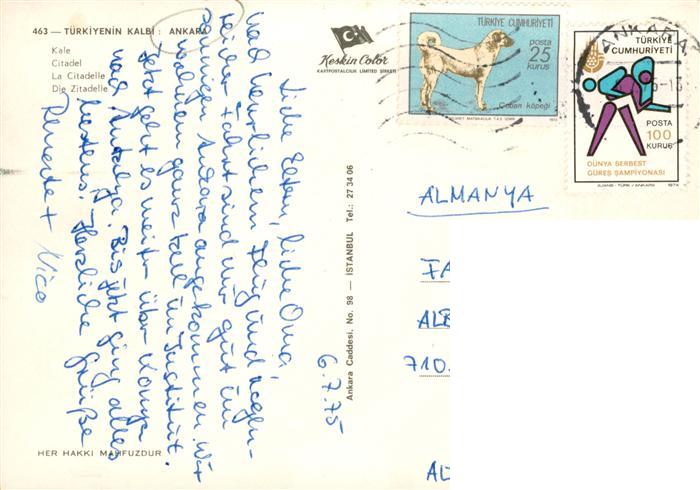 463 — TÜRKİYENİN KALBİ : ANKARA
Kale
Citadel
La Citadelle
Die Zitadelle
Keskin Color
KARTPOSTALCILIK LIMITED ŞİRKETİ
TÜRKİYE CUMHURİYETİ
posta
25
kuruş
Çoban köpeği
ANKARA
TÜRKİYE
CUMHURİYETİ
POSTA
100
KURUŞ
DÜNYA SERBEST
GÜREŞ ŞAMPİYONASI
AJANS - TÜRK / ANKARA 1974
6.7.75
Liebe Eltern, liebe Oma,
nach herrlichem Flug und
reicher Fahrt sind wir gut im
sonnigen Ankara angekommen. Wir
wohnen ganz toll im Institut.
Jetzt geht es weiter über Konya
nach Antalya. Bis jetzt ging alles
bestens. Herzliche Grüße
Renate + Nico
Ankara Caddesi, No. 98 — İSTANBUL Tel.: 27 34 06
ALMANYA
FA
ALB
710.
AL
HER HAKKI MAHFUZDUR